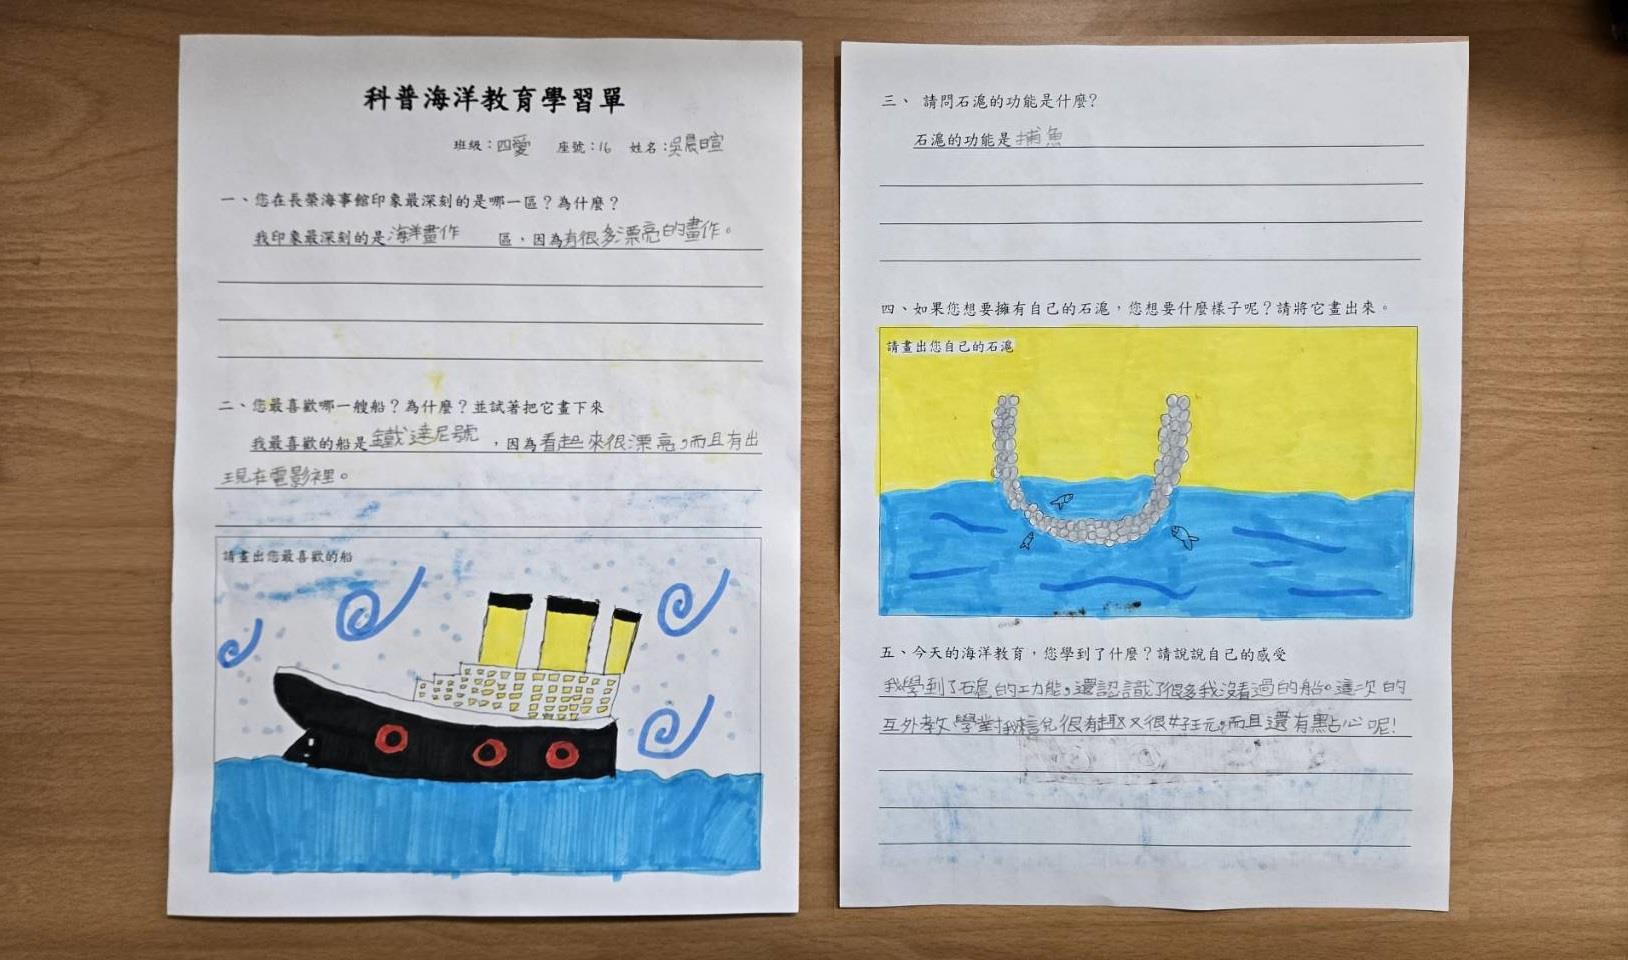 科普海洋教育學習單
班級：四愛 座號：16 姓名：吳晨暄
一、您在長榮海事館印象最深刻的是哪一區？為什麼？
我印象最深刻的是海洋畫作 區，因為有很多漂亮的畫作。
二、您最喜歡哪一艘船？為什麼？並試著把它畫下來
我最喜歡的船是鐵達尼號，因為看起來很漂亮，而且有出
現在電影裡。
請畫出您最喜歡的船
三、 請問石滬的功能是什麼?
石滬的功能是捕魚
四、如果您想要擁有自己的石滬，您想要什麼樣子呢？請將它畫出來。
請畫出您自己的石滬
五、今天的海洋教育，您學到了什麼？請說說自己的感受
我學到了石滬的功能，還認識了很多我沒看過的船。這次的
互外教學對我來說很有趣又很好玩，而且還有點心呢!